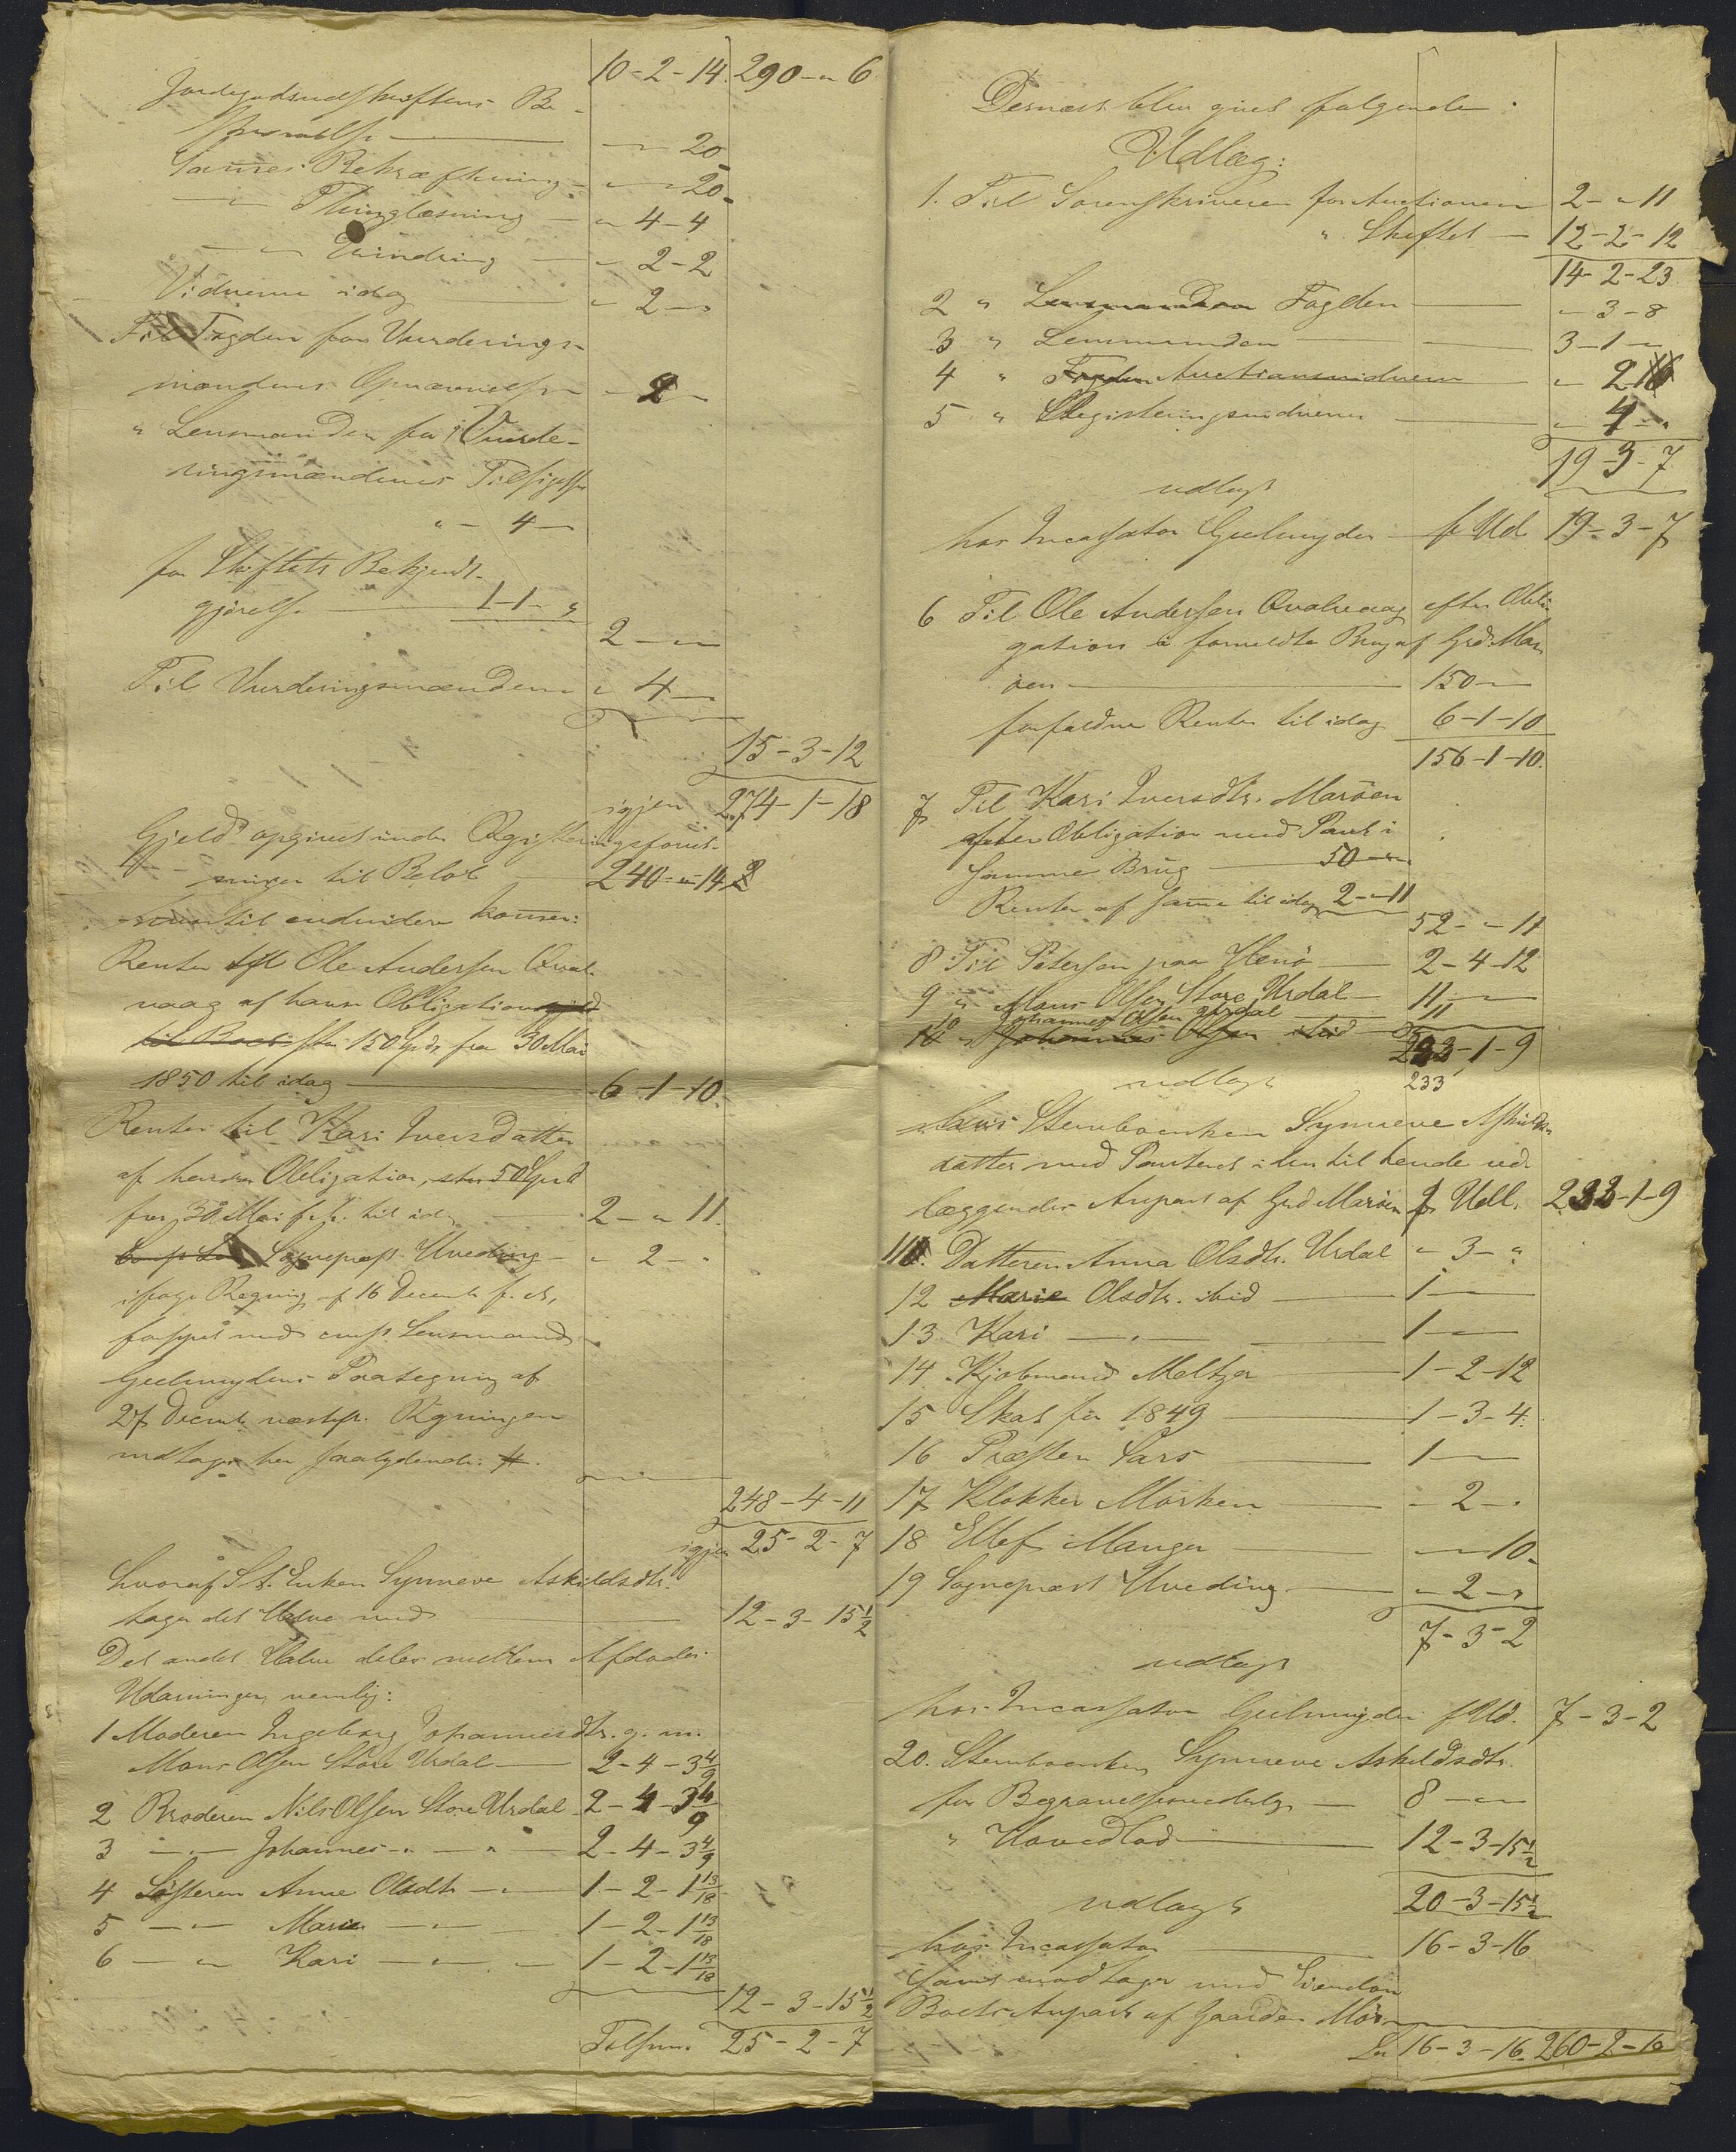 10-2-14. 290-"-6
Jordegodsudskriftens Be-
skrivelse — " - " 20
Sammes Bekræftning - " - " 20-
— " — Thinglæsning — " 4-4
— " — Erindring — " 2-2
Vidnerne idag — " 2 - "
Til Fogden for Vurderings-
mændenes Opnævnelse - " 2 -
" Lensmanden for Vurde-
ringsmændenes Tilsigelse
" - 4 -
for Skiftets Bekjendt-
gjørelse — 1-1-"
2 - " -
Til Vurderingsmændene " 4 -
15-3-12
igjen 274-1-18
Gjeld opgivet under Registeringsforret-
ningen til Beløb — 240-"-14
til endvidere kommer:
Renter til Ole Andersen Qval-
vaag af hans Obligation
til Boet stor 150 Spd. fra 30 Mai
1850 til idag — 6-1-10.
Renter til Kari Iversdatter
af hendes Obligation, stor 50 Spd
fra 30 Mai f. A. til idag — 2-"-11.
Sogneprest Uveding — " 2 - "
ifølge Regning af 16 Decemb f. A.,
forsynet med Lensmand
Geelmuydens Paategning af
27 Decemb næstefter. Regningen
indtages her saalydende: #.
248-4-11
igjen 25-2-7
hvoraf St. Enken Synneve Askildsdtr.
tager det Halve med — 12-3-15½
Det andet Halve deles mellem Afdødes
Udarvinger, nemlig:
1 Moderen Ingeborg Johannesdtr. g. m.
Mons Olsen Store Urdal — 2-4-3 4/9
2 Broderen Nils Olsen Store Urdal - 2-4-3 4/9
3 — " — Johannes - " — " — 2-4-3 4/9
4 Søsteren Anne Olsdtr — " — 1-2-1 13/18
5 — " — Marie — " — 1-2-1 13/18
6 — " — Kari — " — 1-2-1 13/18
12-3-15½
Tilsum. 25-2-7
Dernæst blev gjort følgende
Udlæg:
1. Til Sorenskriveren for Auctionen 2-"-11
" Skiftet — 12-2-12
14-2-23
2 " Lensmanden Fogden — " -3-8
3 " Lensmanden — 3-1-"
4 " Fogden Auctionsvidnerne " 2-16
5 " Registeringsvidnerne — " 4 - "
19-3-7
udlagt
hos Incassator Geelmuyden f Ud. 19-3-7
6 Til Ole Andersen Qvalvaag efter Obli-
gation i formeldte Brug af Grd. Mar-
øen — 150 - "
forfaldne Renter til idag 6-1-10
156-1-10.
7 Til Kari Iversdtr. Marøen
efter Obligation med Pant i
samme Brug — 50 - "
Renter af samme til idag 2-"-11
52-"-11
8 Til Petersen paa Herø — 2-4-12
9 " Mons Olsen Store Urdal — 11 - "
10 " Johannes Olsen Urdal — 11
Johannes Olsen ibid
233-1-9
udlagt 233
hos Stervboenken Synneve Askilds-
datter med Panteret i den til hende ud-
læggendes Anpart af Grd Marøen f. Udl. 233-1-9
11. Datteren Anna Olsdtr. Urdal " 3 - "
12 Marie Olsdtr. ibid — 1 - "
13. Kari — " — 1 - "
14. Kjøbmand Meltzer — 1-2-12
15 Skat for 1849 — 1-3-4.
16 Præsten Sars — 1 - "
17 Klokker Mørken — " 2 - "
18 Ellef Manger — " - " 10-
19 Sogneprest Uveding — " 2 - "
7-3-2
udlagt
hos Incassator Geelmuyden f Ud. 7-3-2
20. Stervboenken Synneve Askildsdtr.
for Begravelse — 8 - "
" Hovedlod — 12-3-15½
20-3-15½
udlagt
hos Incassator — 16-3-16
samt modtager med Eiendom
Boets Anpart af Gaarden Mar-
Lat. 16-3-16. 260-2-16